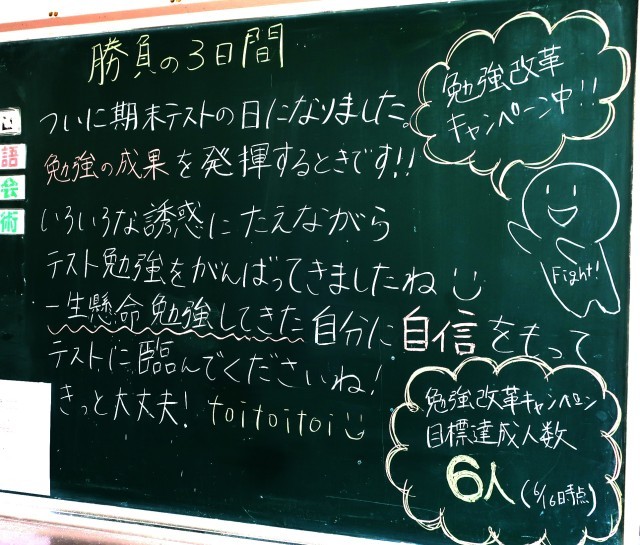 勝負の3日間
ついに期末テストの日になりました。
勉強の成果を発揮するときです!!
いろいろな誘惑にたえながら
テスト勉強をがんばってきましたね
一生懸命勉強してきた自分に自信をもって
テストに臨んでくださいね!
きっと大丈夫! toitoitoi
勉強改革
キャンペーン中!!
Fight!
勉強改革キャンペーン
目標達成人数
6人(6/16日時点)
語
会
術